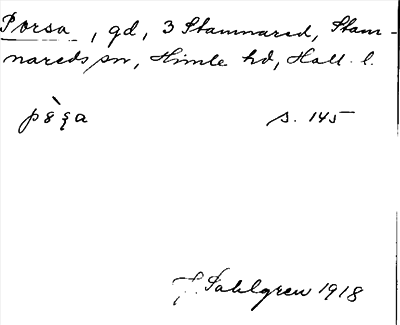 Porsa, gd, 3 Stamnared, Stam-
nareds sn, Himle hd, Hall. l.
s. 145
J. Sahlgren 1918